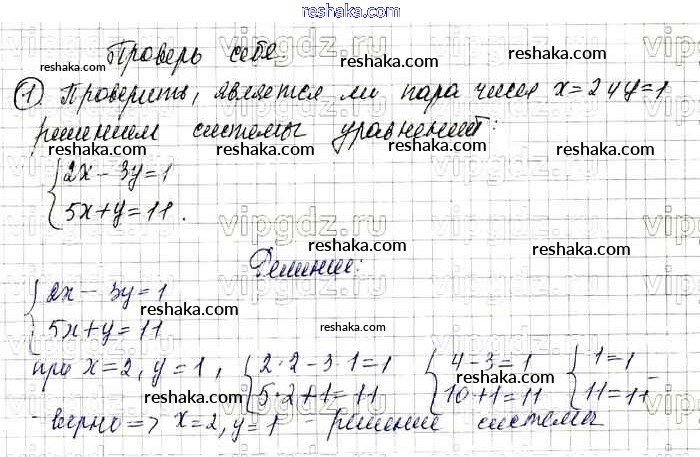 reshaka.com
Проверь себя.
① Проверить, является ли пара чисел x=2 и y=1
решением системы уравнений:
{ 2x-3y=1
5x+y=11.
Решение:
{ 2x-3y=1
5x+y=11
при x=2, y=1, { 2·2-3·1=1 { 4-3=1 { 1=1
5·2+1=11 10+1=11 11=11 -
- верно => x=2, y=1 - решение системы